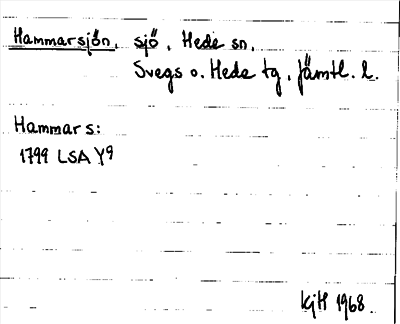 Hammarsjön, sjö, Hede sn,
Svegs o. Hede tg, Jämtl. l.
Hammar s:
1799 LSA Y9
KjH 1968